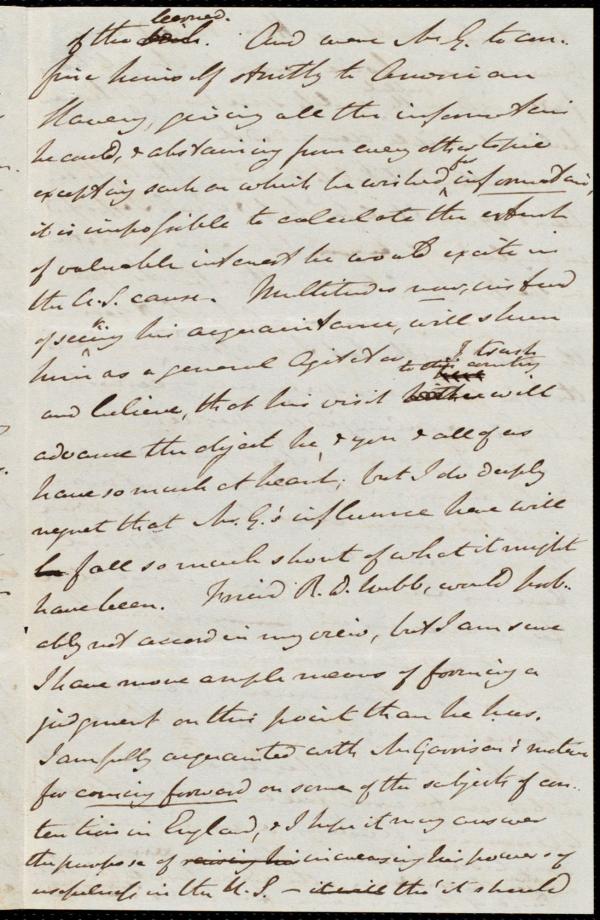 learned.
of the And were Mr G. to con-
fine himself strictly to American
Slavery, giving all the information
he could, & abstaining from every other topic
excepting such on which he wished for information,
it is impossible to calculate the extent
of valuable interest he would excite in
the A.S. cause. Multitudes now, instead
of seeking his acquaintance, will shun
him as a general Agitator. I trust
to this country
and believe, that his visit hither will
advance the object he & you & all of us
have so much at heart; but I do deeply
regret that Mr. G.'s influence here will
be fall so much short of what it might
have been. Friend R. D. Webb, would prob-
ably not accord in my view, but I am sure
I have more ample means of forming a
judgment on this point than he has.
I am fully acquainted with Mr Garrison's motive
for coming forward on some of the subjects of con-
tention in England, & I hope it may answer
the purpose of increasing his powers of
usefulness in the U.S. - it will tho' it should